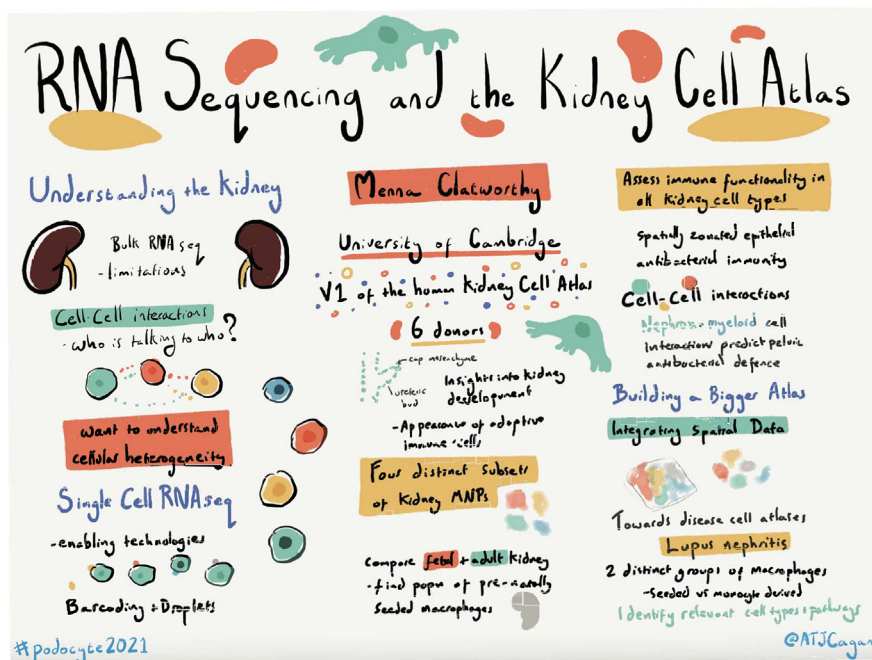 RNA Sequencing and the Kidney Cell Atlas
Understanding the Kidney
Bulk RNA seq
- limitations
Cell-Cell interactions
- who is talking to who?
want to understand
cellular heterogeneity
Single Cell RNAseq
- enabling technologies
Barcoding + Droplets
Menna Clatworthy
University of Cambridge
V1 of the human Kidney Cell Atlas
6 donors
cap mesenchyme
ureteric
bud
Insights into kidney
development
- Appearance of adaptive
immune cells
Four distinct subsets
of Kidney MNPs
compare fetal + adult kidney
- find popn of pre-natally
seeded macrophages
Assess immune functionality in
all kidney cell types
spatially zonated epithelial
antibacterial immunity
Cell-Cell interactions
Nephron-myeloid cell
interactions predict pelvic
antibacterial defence
Building a Bigger Atlas
Integrating Spatial Data
Towards disease cell atlases
Lupus nephritis
2 distinct groups of macrophages
- Seeded vs monocyte derived
Identify relevant cell types + pathways
#podocyte2021
@ATJCagan